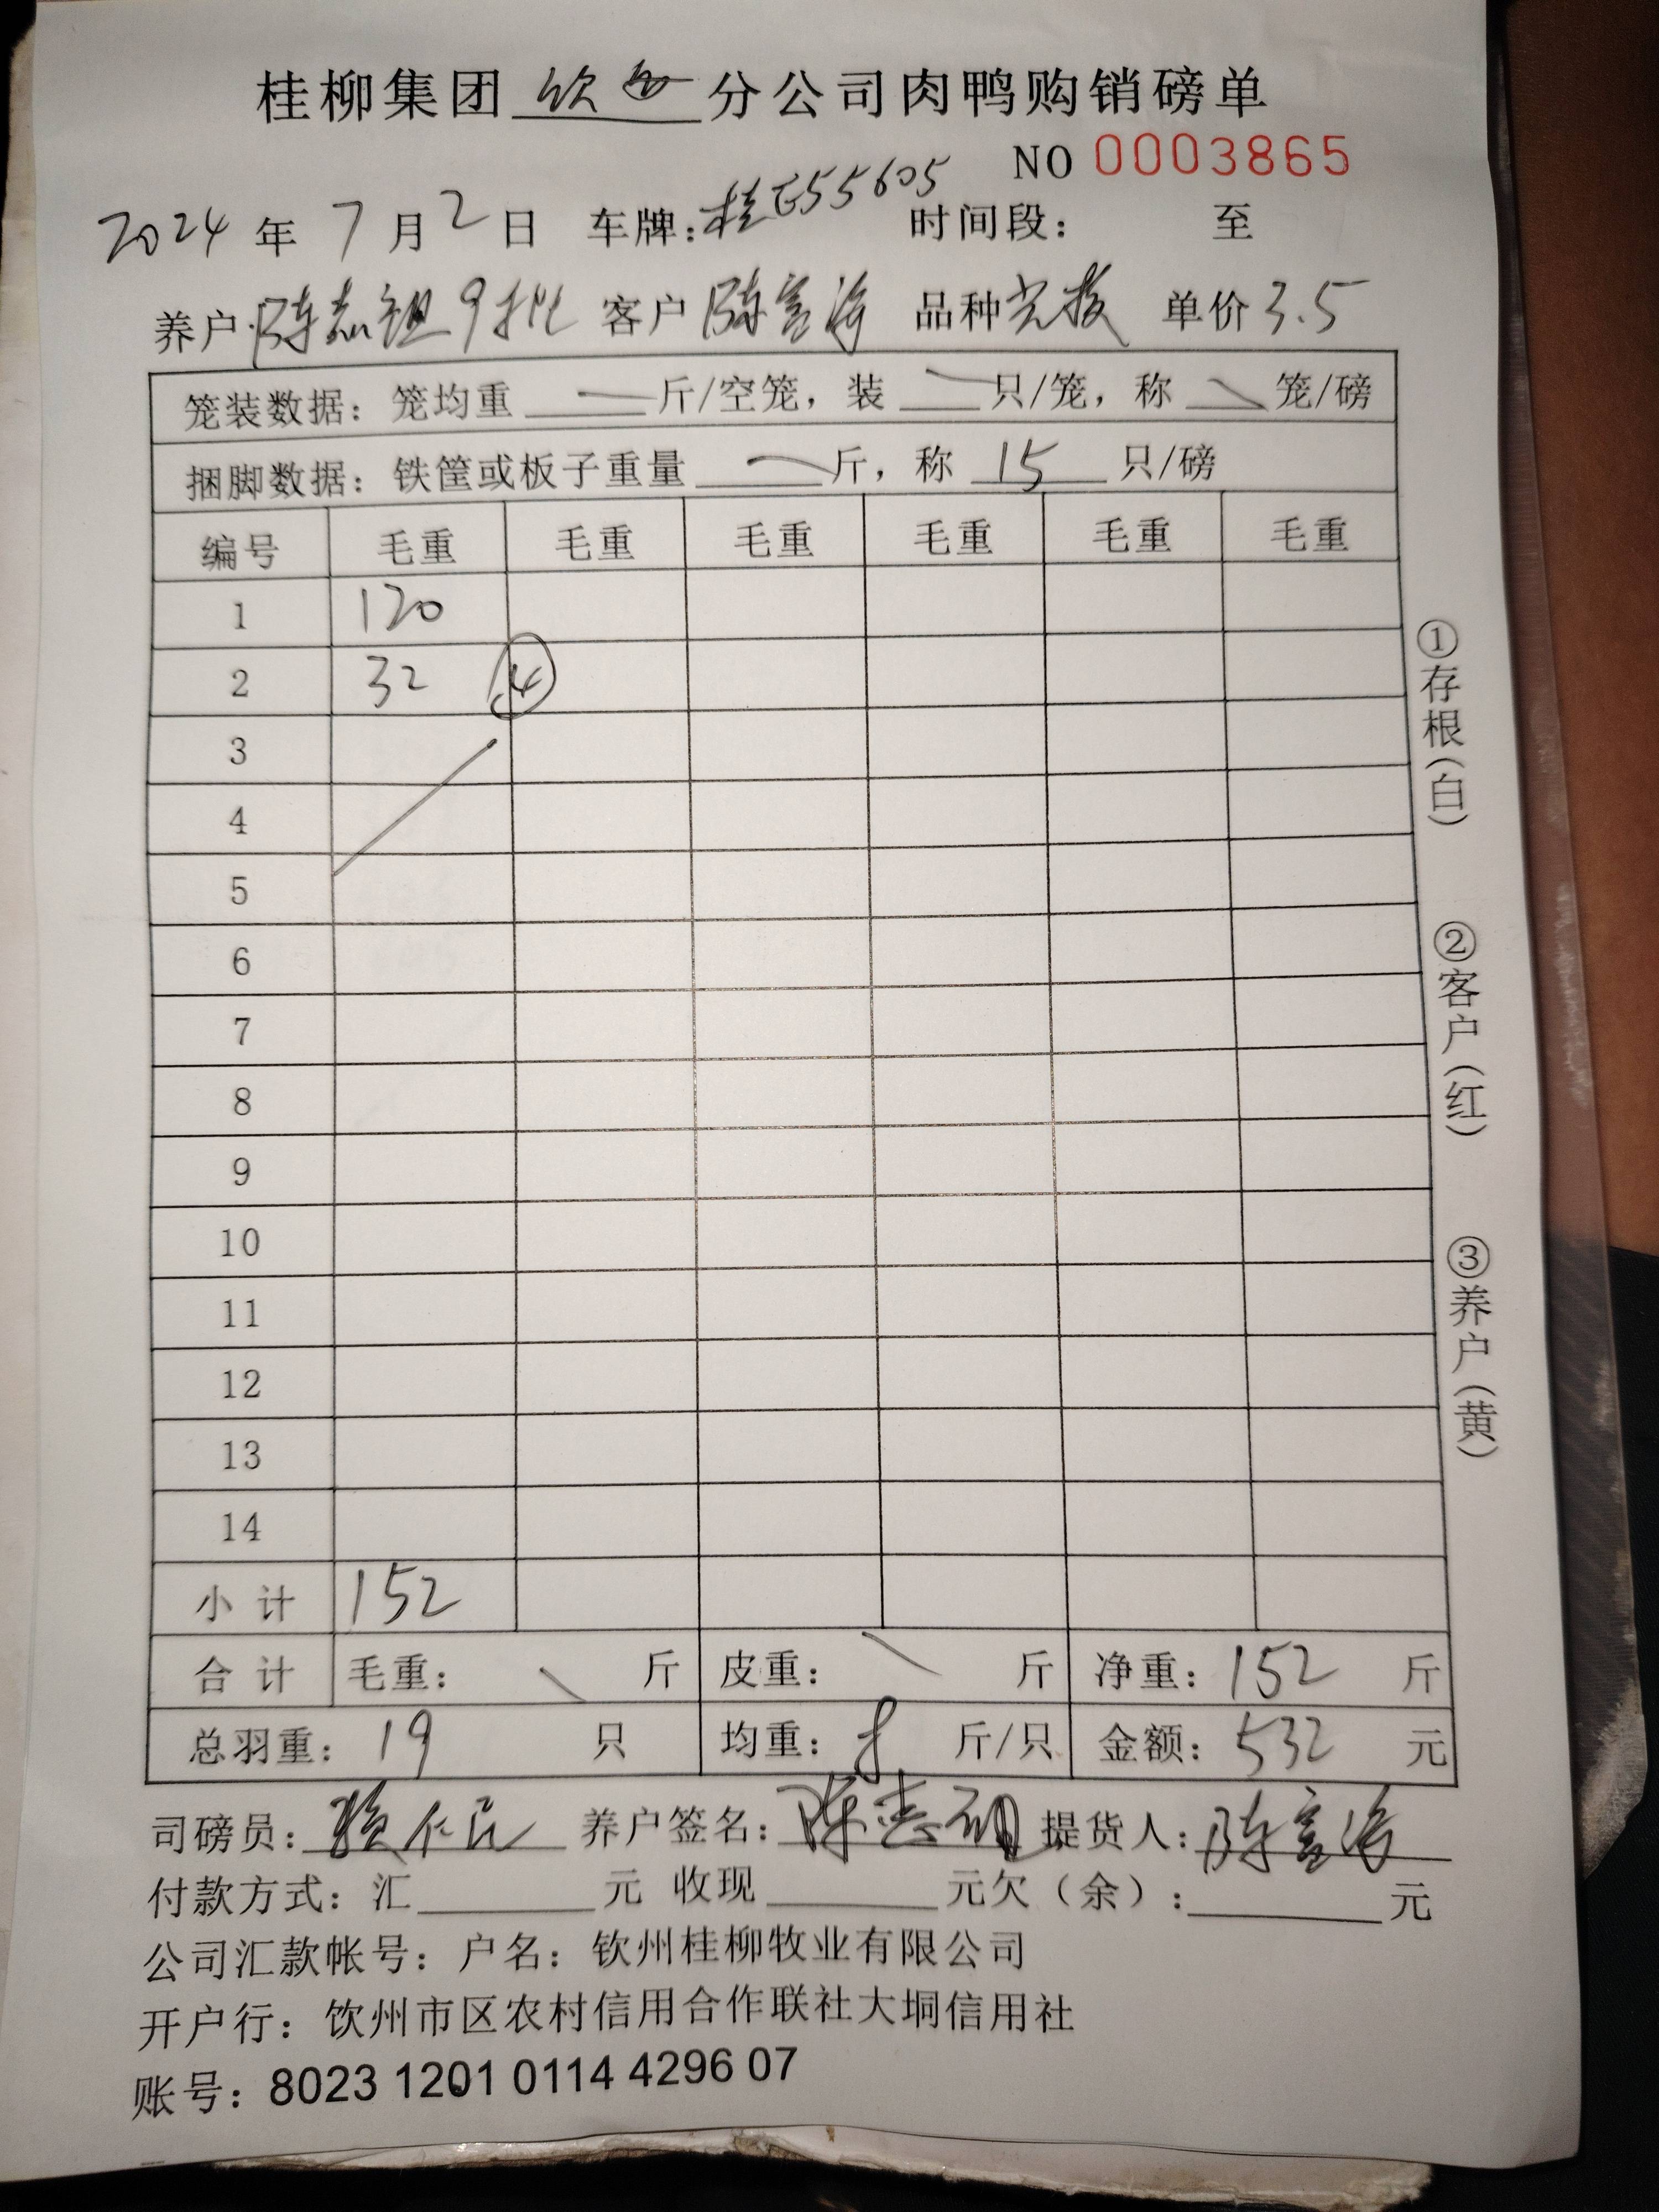 桂柳集团 钦 分公司肉鸭购销磅单
NO 0003865
2024 年 7 月 2 日 车牌:桂E55605 时间段: 至
养户:陈志 9批 客户 陈富海 品种 单价 3.5
笼装数据: 笼均重 斤/空笼, 装 只/笼, 称 笼/磅
捆脚数据: 铁筐或板子重量 斤, 称 15 只/磅
编号 毛重 毛重 毛重 毛重 毛重 毛重
1 120
2 32 ④
3
4
5
6
7
8
9
10
11
12
13
14
小计 152
合计 毛重: 斤 皮重: 斤 净重: 152 斤
总羽重: 19 只 均重: 8 斤/只 金额: 532 元
司磅员: 养户签名: 陈志 提货人: 陈富海
付款方式: 汇 元 收现 元欠(余): 元
公司汇款帐号: 户名: 钦州桂柳牧业有限公司
开户行: 饮州市区农村信用合作联社大垌信用社
账号: 8023 1201 0114 4296 07
①存根(白)
②客户(红)
③养户(黄)